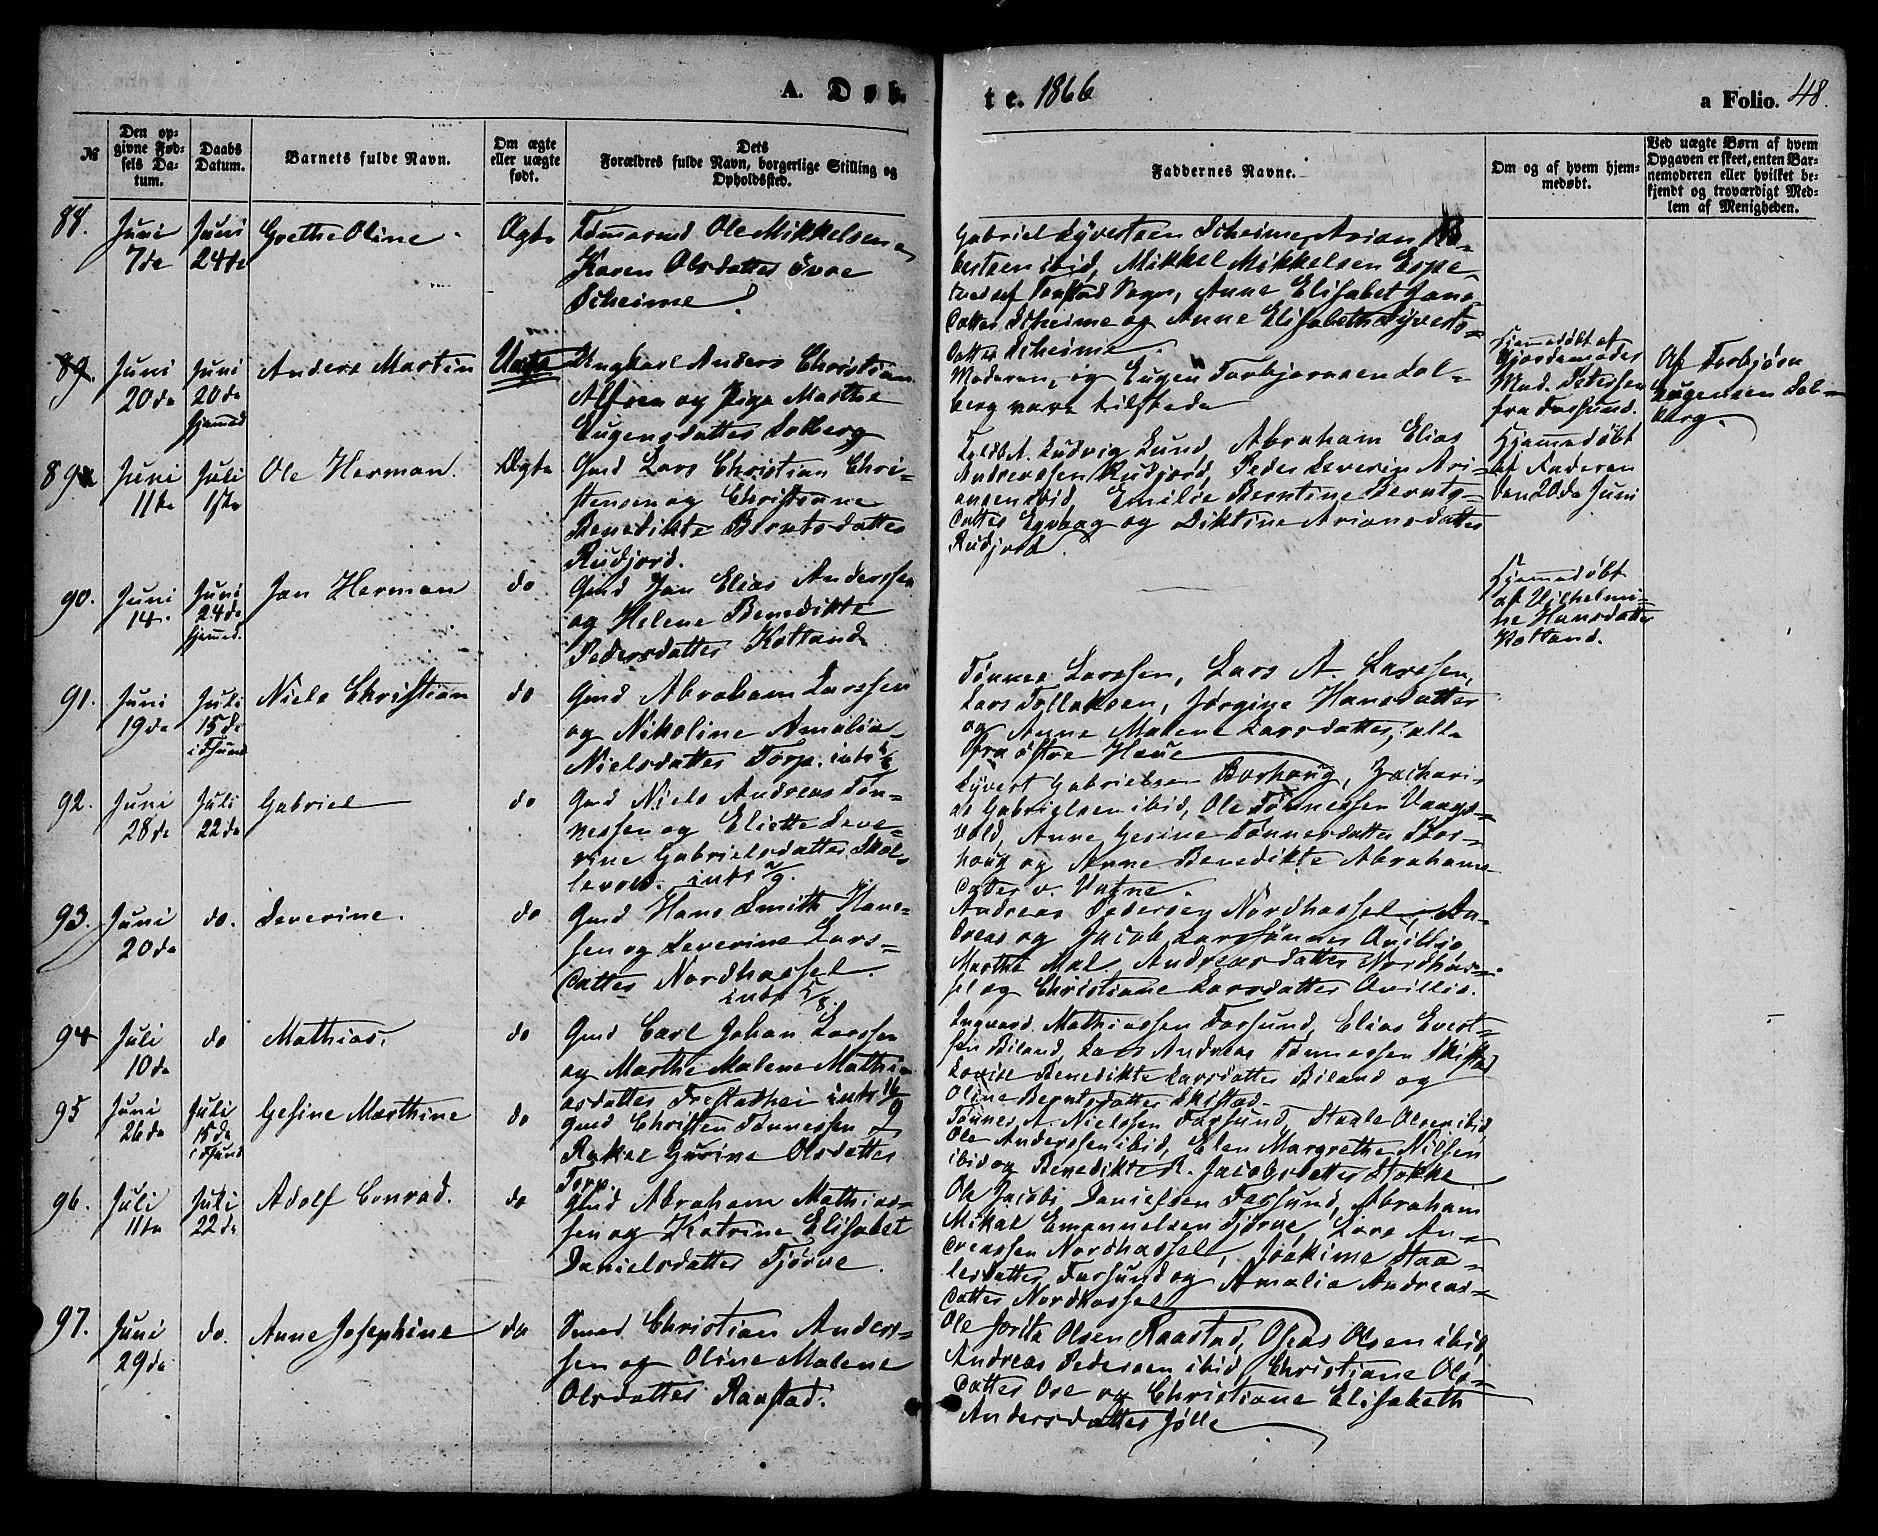 A. Døb-
te. 1866
a Folio. 48.
№
Den op-
givne Fød-
sels Da-
tum.
Daabs
Datum.
Barnets fulde Navn.
Om ægte
eller uægte
født.
Dets
Forældres fulde Navn, borgerlige Stilling og
Opholdssted.
Faddernes Navne.
Om og af hvem hjem-
medøbt.
Ved uægte Børn af hvem
Opgaven er skeet, enten Bar-
nemoderen eller hvilket be-
kjendt og troværdigt Med-
lem af Menigheden.
88.
Juni
7de
Juni
24de
Grethe Oline
Ægte
Ole Mikkelsen
Karen Olsdatter øvre
Scheime
Gabriel Syvertsen Scheime, Arian
ibid, Mikkel Mikkelsen Espe-
Sogn, Anne Elisabet Jans-
datter Scheime og Anne Elisabeth Syverts-
datter Scheime.
89.
Juni
20de
Juni
20de
hjemmed
Anders Martin
Uægte
Ungkarl Anders Christian
og Pige Marthe
Eugensdatter Solberg
Moderen, og Eugen Torbjørnsen Sol-
berg vare tilstede
Hjemmedøbt af
Gjordemoder
Mad. Petersen
fra Farsund.
Af Torbjørn
Eugensen Sol-
berg.
89a
Juni
11te
Juli
1ste
Ole Herman.
Ægte
Gmd Lars Christian Chri-
stensen og Christiane
Benedikte Berntsdatter
Rudjord.
Ludvig Lund, Abraham Elias
Andreassen Rudjord, Peder Severin Ari-
ansen ibid, Emilie Berntine Bernts-
datter og Diktine Ariansdatter
Rudjord.
Hjemmedøbt
af Faderen
den 20de Juni
90.
Juni
14.
Juni
24de
hjemmed.
Jan Herman
do
Gmd Jan Elias Anderssen
og Helene Benedikte
Pedersdatter Kolland
Hjemmedøbt
af Vilhelmi-
ne Hansdatter
Kolland.
91.
Juni
19de
Juli
15de
i Fsund
Niels Christian
do
Gmd Abraham Larssen
og Nikoline Amalia
Nielsdatter Torp.
Tønnes Larssen, Lars A. Larssen,
Lars Tollaksen, Jørgine Hansdatter
og Anne Malene Larsdatter, alle
fra østre Haue
92.
Juni
28de
Juli
22de
Gabriel
do
Gmd Niels Andreas Tøn-
nessen og Eliette Seve-
rine Gabrielsdatter Skol-
levold.
Syvert Gabrielsen Borhoug, Zachari-
as Gabrielsen ibid, Ole Tønnessen Vaags-
vold, Anne Gesine Tønnesdatter Bor-
houg og Anne Benedikte Abrahams-
datter v. Vatne.
93.
Juni
20de
do.
Severine.
do
Gmd Hans Smith Han-
sen og Severine Lars-
datter Nordhassel.
Andreas Pedersen Nordhassel, An-
dreas og Jacob Larssønner Qvillio
Marthe Mal. Andreasdatter Nordhas-
sel og Christiane Larsdatter Qvillio.
94
Juli
10de
do
Mathias,
do
Gmd Carl Johan Larssen
og Marthe Malene Mathi-
asdatter
Ingvard Mathiassen Farsund, Elias Evert-
sen Biland, Lars Andreas Tønnessen Skistad
Lovise Benedikte Larsdatter Biland og
Oline Berntsdatter Skistad.
95
Juni
26de
Juli
15de
i Fsund
Gesine Marthine
do
Gmd Christen Tønnessen og
Rakel Gurine Olsdatter
Torp.
Tønnes A. Nielssen Farsund, Staale Olsen ibid,
Ole Anderssen ibid, Elen Margrethe Nilsen
ibid og Benedikte R. Jacobsdatter Stokke
96.
Juli
11te
Juli
22de
Adolf Conrad.
do
Gmd Abraham Mathias-
sen og Katrine Elisabet
Danielsdatter Tjørve.
Ole Jacobs Danielsen Farsund, Abraham
Mikal Emanuelsen Tjørve, Lars An-
dreassen Nordhassel, Joakime Staa-
lesdatter Farsund og Amalia Andreas-
datter Nordhassel
97.
Juni
29de
do.
Anne Josephine
do
Christian Anders-
sen og Oline Malene
Olsdatter Raastad.
Ole Olsen Raastad, Olsen ibid,
Andreas Pedersen ibid, Christiane Ols-
datter Ore og Christiane Elisabeth
Andersdatter Jølle